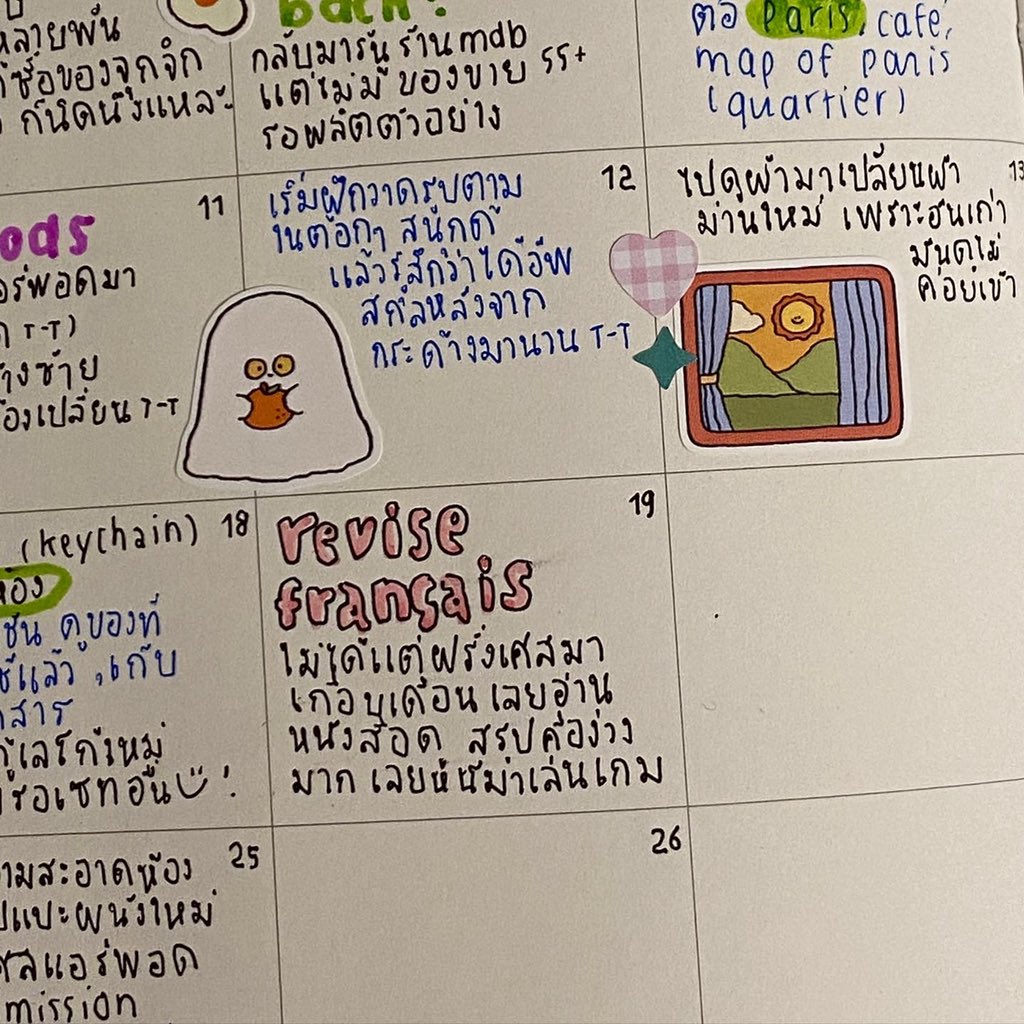 หลายพัน
ซื้อของจุกจิก
ก็นิดนึงแหละ
Back!
กลับมารันร้าน mdb
แต่ไม่มีของขาย 55+
รอผลิตตัวอย่าง
ต่อ Paris, café,
map of paris
(quartier)
11
ods
อร์พอดมา
T-T)
้างซ้าย
้องเปลี่ยน T-T
12
เริ่มฝึกวาดรูปตาม
ในต๊อกๆ สนุกดี
แล้วรู้สึกว่าได้อัพ
สกิลหลังจาก
กระด้างมานาน T-T
13
ไปดูผ้ามาเปลี่ยนผ้า
ม่านใหม่ เพราะอันเก่า
มันดูไม่
ค่อยเข้า
(keychain) 18
ห้อง
ดูของที่
แล้ว, เก็บ
สาร
รอเซทอื่น !
19
revise
français
ไม่ได้แตะฝรั่งเศสมา
เกือบเดือน เลยอ่าน
หนังสือด สรุปคือง่วง
มาก เลยหันมาเล่นเกม
25
ามสะอาดห้อง
แปะผนังใหม่
แอร์พอด
mission
26